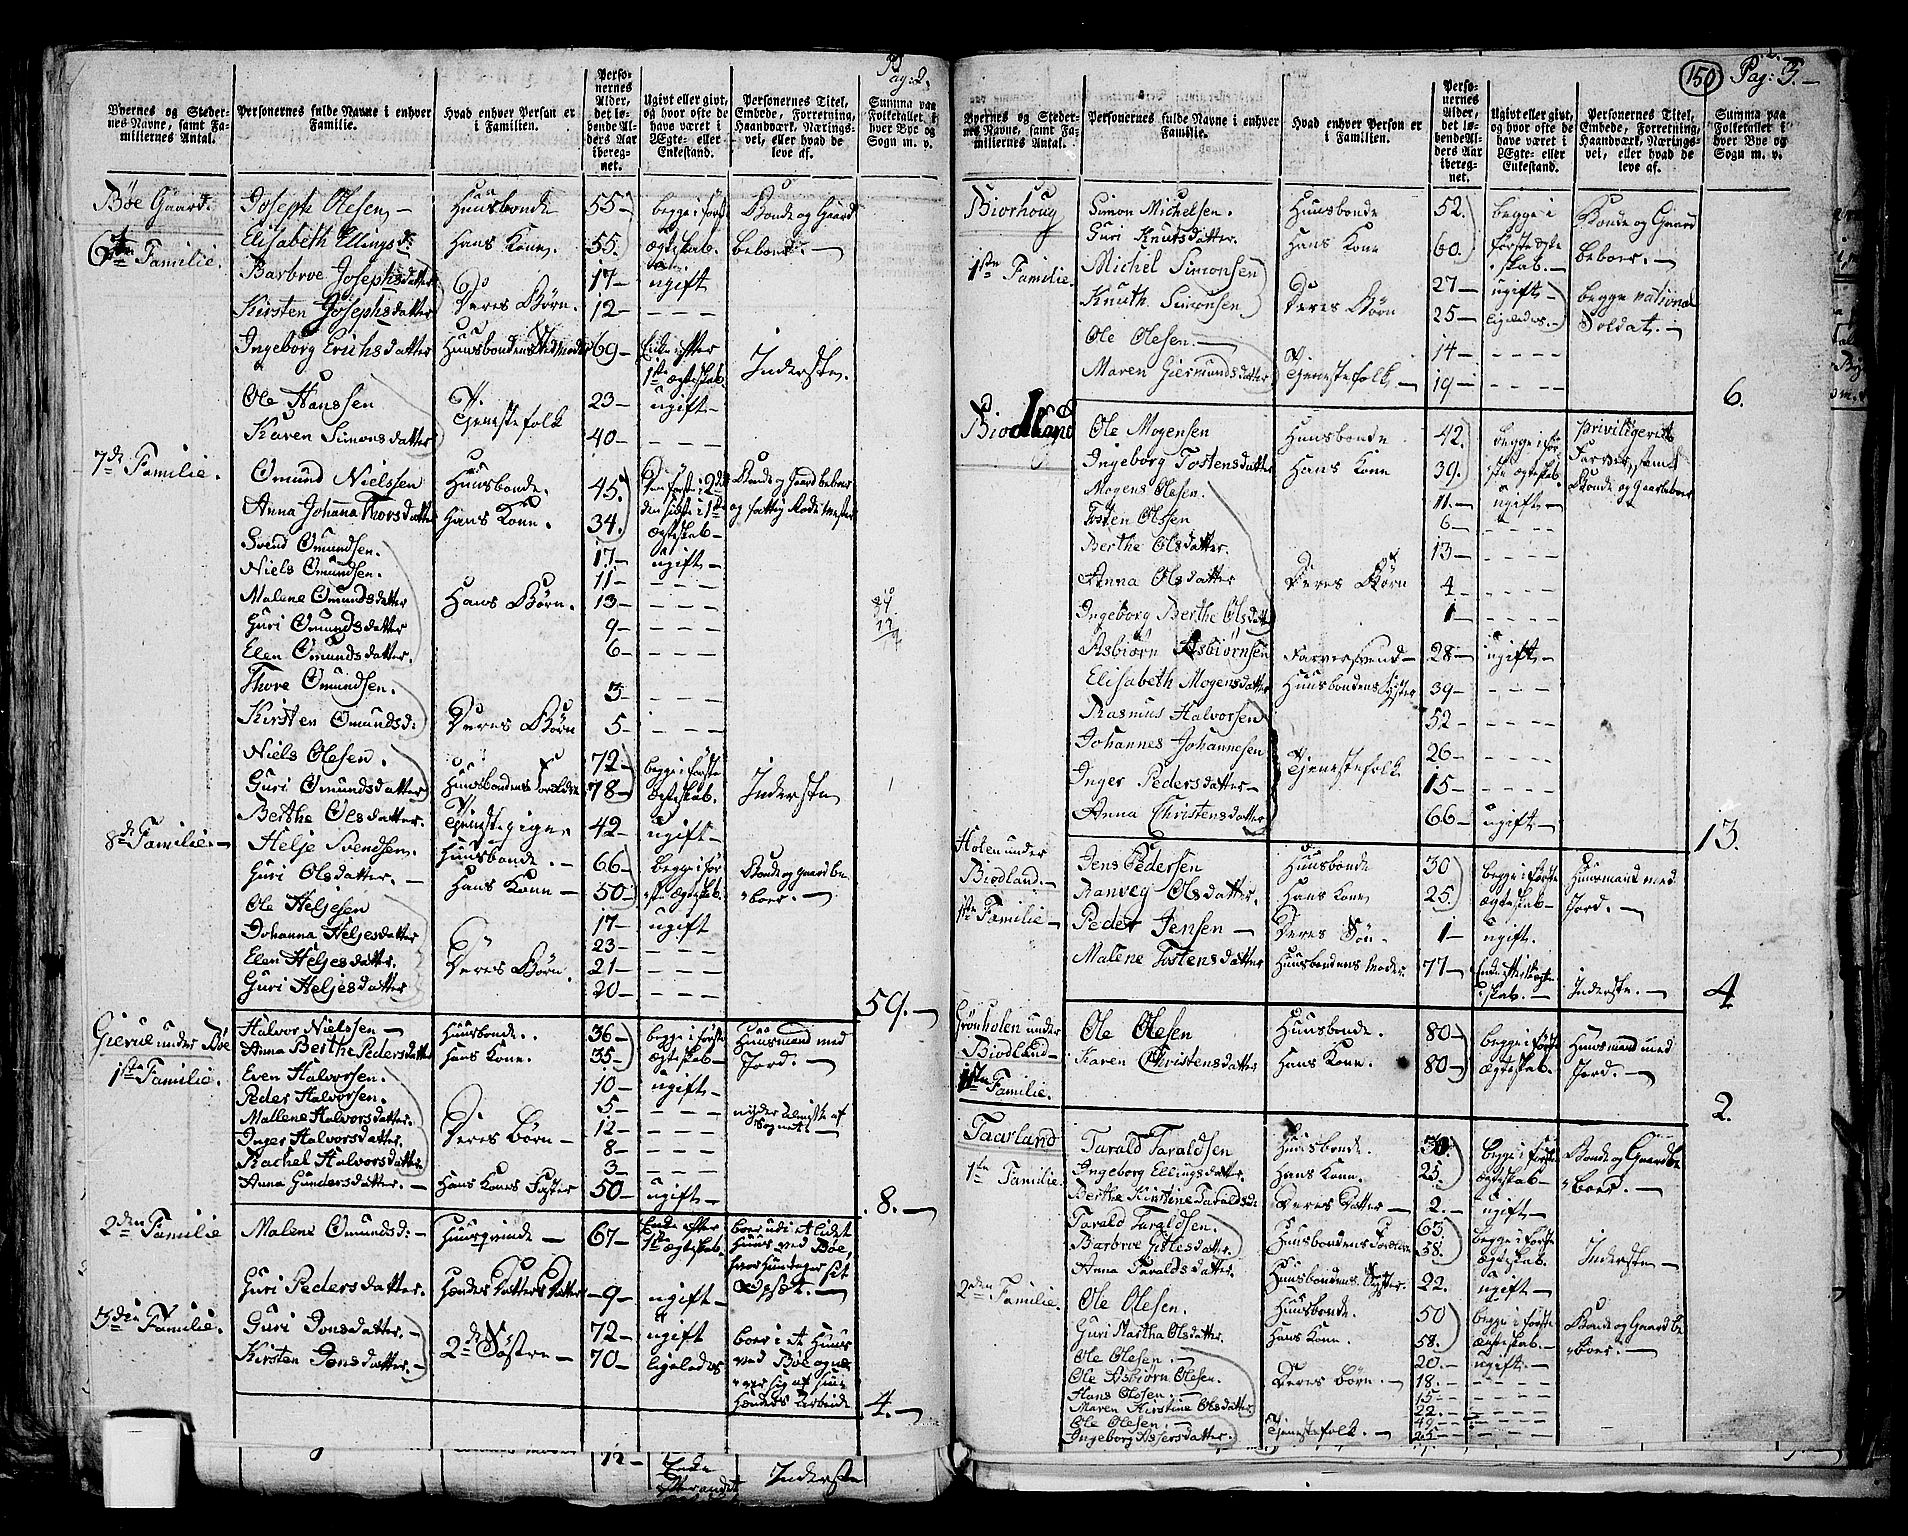 Pag: 2.
Byernes og Steder-
nes Navne, samt Fa-
miliernes Antal.
Personernes fulde Navne i enhver
Familie.
Hvad enhver Person er
i Familien.
Perso-
nernes
Alder,
det lø-
bende Al-
ders Aar
ibereg-
net.
Ugivt eller givt,
og hvor ofte de
have været i
Ægte- eller
Enkestand.
Personernes Titel,
Embede, Forretning,
Haandværk, Nærings-
vei, eller hvad de
leve af.
Summa paa
Folketallet i
hver Bye og
Sogn m. v.
Bøe Gaard. Joseph Olesen — Huusbonde 55 begge i første Bonde og Gaard
6te Familie. Elisabeth Ellingsd: Hans Kone. 55. Ægteskab. beboer. —
Barbroe Josephsdatter 17 — ugift
Kirsten Josephsdatter Deres Børn. 12 — — — —
Ingeborg Erichsdatter Huusbondens Stedmoder 69 — Enke efter
1ste Ægteskab. Inderste.
Ole Hanssen 23 — ugift —
Karen Simonsdatter Tjenestefolk 40 — — — —
7de Familie. Omund Nielssen Huusbonde. 45. Den første i 2det Bonde og Gaard beboer
Anna Johana Thorsdatter Hans Kone. 34. den sidste i 1ste og fattig Rodemester
Ægteskab —
Svend Omundsen. 17 — ugift —
Niels Omundsen. 11 — — — —
Malene Omundsdatter Hans Børn. 13 — — — —
Guri Omundsdatter 9 — — — —
Elen Omundsdatter. 6 — — — —
Thore Omundsen. 3 — — — —
Kirsten Omundsd: Deres Børn 5 — — — —
Niels Olesen. 72 — begge i første
Guri Omundsdatter Huusbondens Forældre 78 — Ægteskab. Inderste
Berthe Olsdatter. Tjenestepige 42 — ugift —
8de Familie. — Helje Svendsen. Huusbonde. — 66 — begge i før- Bonde og gaard be-
Guri Olsdatter. — Hans Kone — 50 — ste Ægteskab. boer. —
Ole Heljesen 17 — ugift
Johanna Heljesdatter 23 — — — —
Elen Heljesdatter. Deres Børn. 21 — — — —
Guri Heljesdatter 20 — — — —
59. —
Gierue under Bøe Halvor Nielssen — Huusbonde. 36 begge i første Huusmand med
Anna Berthe Pedersdatter Hans Kone. 35 Ægteskab — Jord. —
1ste Familie. Even Halvorsen. 10 — ugift —
Peder Halvorsen. 5 — — — —
Mallene Halvorsdatter. Deres Børn — 12 — — — — nyder Almisse af
Inger Halvorsdatter. 8 — — — — Sognet. —
Rachel Halvorsdatter 3 — — — —
Anna Gundersdatter. — Hans Kones Syster 50 — ugift —
8. —
2den Familie Malene Omundsd: — Huusqvinde — 67 — Enke efter boer udi et lidet
1ste Ægteskab. Huus ved Bøe,
Guri Pedersdatter. Hendes Datters Datter — 9 — ugift —
3die Familie. Guri Jonsdatter. — 72 — ugift boer i et Huus
Kirsten Jonsdatter. — 2de Søstre — 70 — ligeledes ved Bøe og
Hænders Arbeide
4. —
12 — Enke
Inderste
150
Pag: 3. —
Byernes og Steder-
nes Navne, samt Fa-
miliernes Antal.
Personernes fulde Navne i enhver
Familie.
Hvad enhver Person er
i Familien.
Perso-
nernes
Alder,
det lø-
bende Al-
ders Aar
ibereg-
net.
Ugivt eller givt,
og hvor ofte de
have været i
Ægte- eller
Enkestand.
Personernes Titel,
Embede, Forretning,
Haandværk, Nærings-
vei, eller hvad de
leve af.
Summa paa
Folketallet i
hver Bye og
Sogn m. v.
Biorhoug Simon Michelsen. Huusbonde 52. begge i Bonde og Gaard
Guri Knutsdatter. Hans Kone 60. første Ægte- beboer. —
1ste Familie. Michel Simonsen 27 — skab. —
ugift —
Knuth Simonsen Deres Børn 25 — ligeledes. — begge national
Soldat. —
Ole Olesen. — 14 — — — —
Maren Giermundsdatter Tjenestefolk — 19 — — — —
6.
Biodland Ole Mogensen Huusbonde 42. begge i før- priviligeret
Ingeborg Tostensdatter Hans Kone 39. ste Ægteskab. Farver, samt
Mogens Olesen. 11. — ugift — Bonde og Gaardbeboer
Tosten Olssen 6 — — — —
Berthe Olsdatter. 13 — — — —
Anna Olsdatter Deres Børn 4 — — — —
Ingeborg Berthe Olsdatter 1 — — — —
Asbiørn Asbiørnsen Farversvend — 28 — ugift —
Elisabeth Mogensdatter Huusbondens Syster 39 — — — —
Rasmus Halvorsen 52 — — — —
Johannes Johannesen Tjenestefolk 26 — — — —
Inger Pedersdatter — 15 — — — —
Anna Christensdatter 66 — ugift —
13.
Holen under
Biodland. — Jens Pedersen Huusbonde 30 begge i første Huusmand med
1ste Familie — Ranvey Olsdatter. Hans Kone 25. Ægteskab — Jord. —
Peder Jensen — Deres Søn — 1 — ugift.
Malene Tostensdatter Huusbondens Moder 77 — Enke efter 1ste Ægte-
skab. — Inderste. —
4
Grønholen under Ole Olesen Huusbonde. 80 begge i første Huusmand med
Biodland — Karen Christensdatter Hans Kone. 80 Ægteskab. Jord. —
1ste Familie.
2.
Taarland Tarald Taraldsen Huusbonde. 30. begge i første Bonde og Gaardbe-
1ste Familie. Ingeborg Ellingsdatter. Hans Kone. 25. Ægteskab — boer. —
Berthe Kirstine Taraldsd: Deres Datter — 2. — ugift —
Tarald Taraldsen. 63 begge i første
Barbroe Gitlesdatter. Huusbondens Forældre 58. Ægteskab. Inderste —
Anna Taraldsdatter. Huusbondens Syster. 22. ugift —
2den Familie. Ole Olesen. Huusbonde. 50 begge i første Bonde og Gaard be-
Guri Martha Olsdatter. Hans Kone. 58. Ægteskab. boer. —
Ole Olesen. — 20 — ugift. —
Ole Asbiørn Olesen. Deres Børn. — 18. — — —
Hans Olesen. — 15 — — — —
Maren Kirstine Olsdatter 22. — — — —
Ole Olesen. — 49 — — — —
Ingeborg Assersdatter. Tjenestefolk. — 25 — — — —